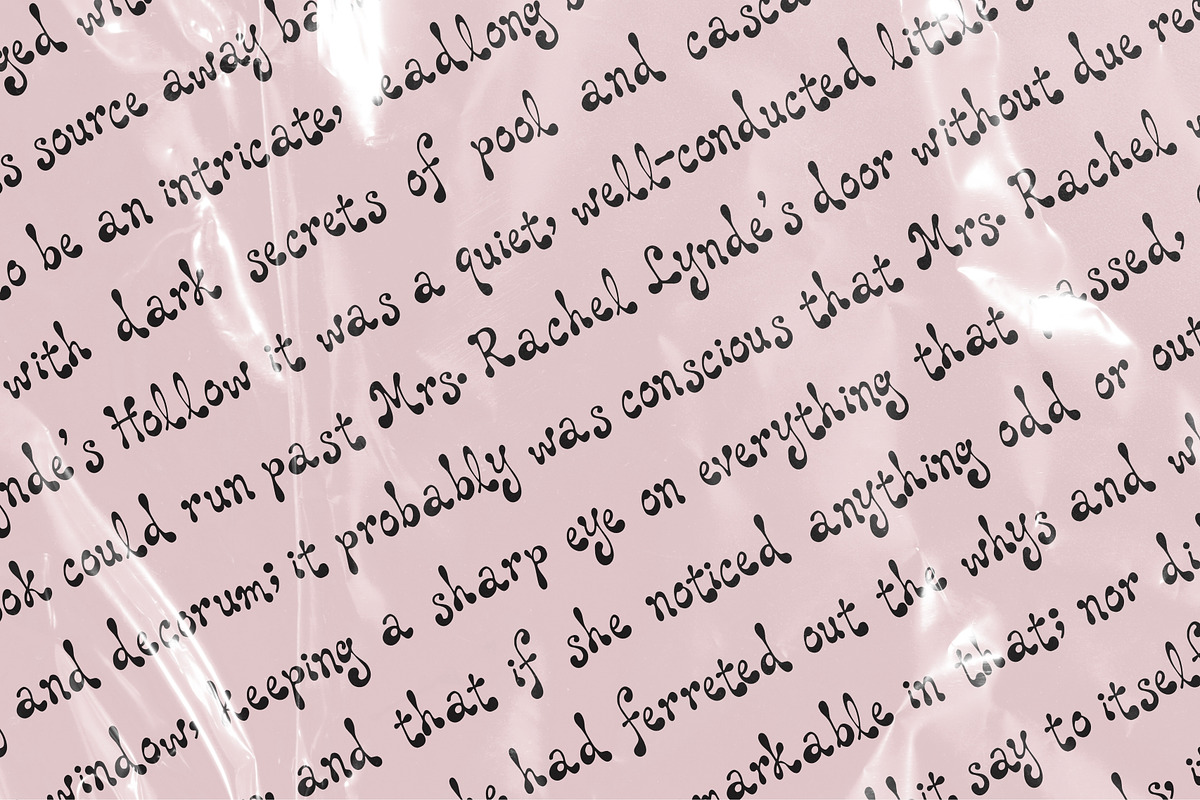 ged wit
s source away ba
to be an intricate, eadlong
with dark secrets of pool and casca
nde's Hollow it was a quiet, well-conducted little s
ook could run past Mrs. Rachel Lynde's door without due re
and decorum; it probably was conscious that Mrs. Rachel
window, keeping a sharp eye on everything that passed,
and that if she noticed anything odd or out
he had ferreted out the whys and wh
markable in that; nor di
it say to itself